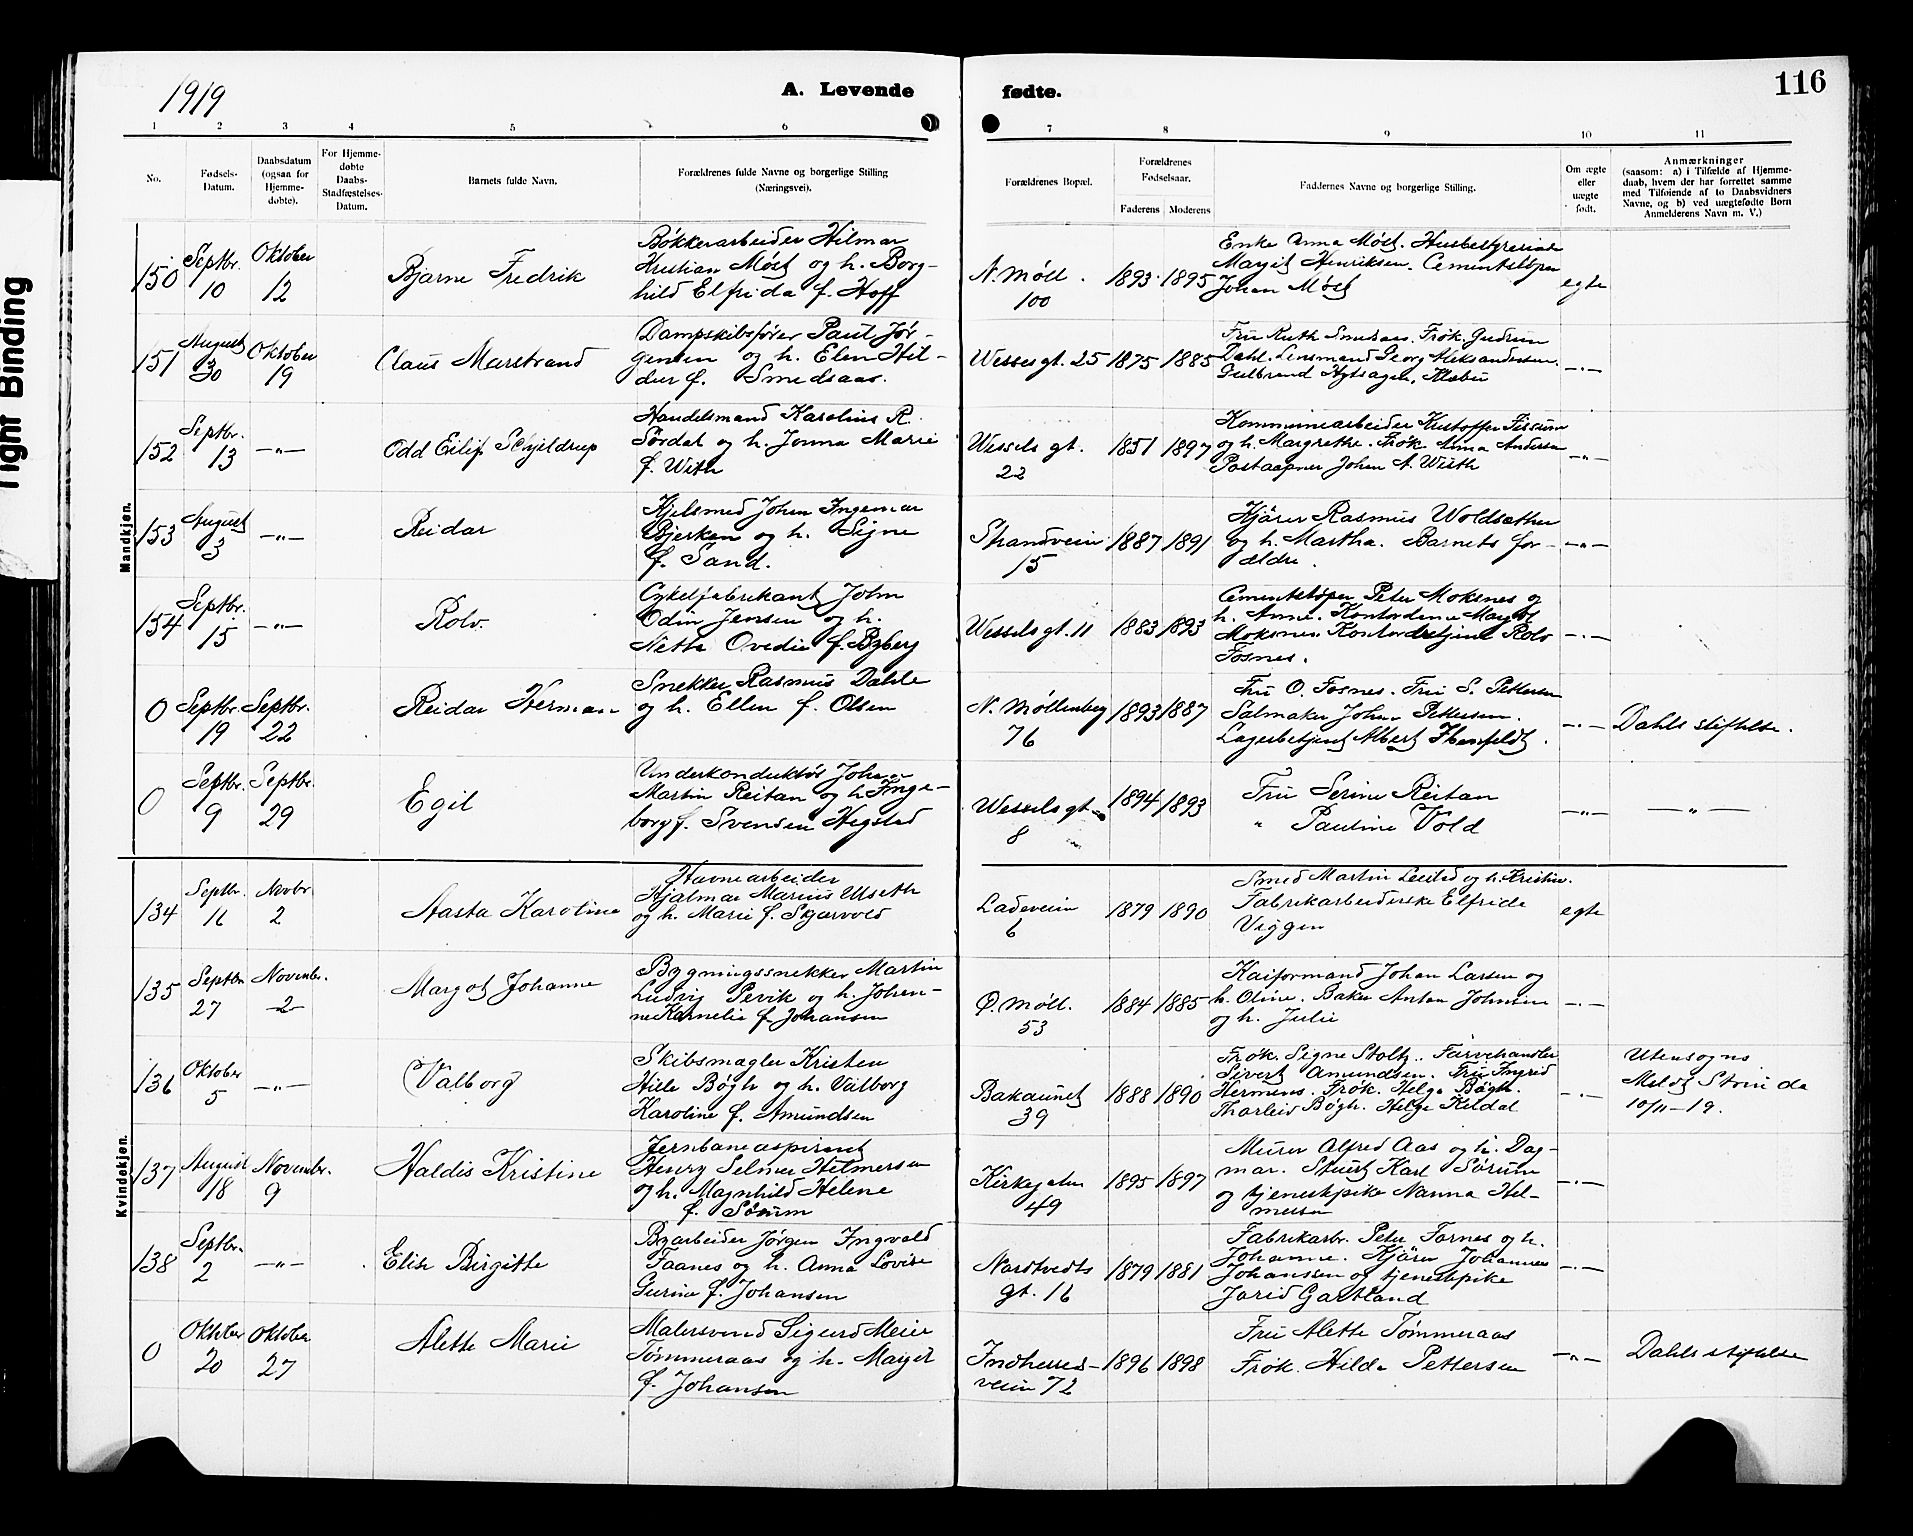 1919
A. Levende fødte.
116
Tight Binding
1 2 3 4 5 6 7 8 9 10 11
No.
Fødsels-
Datum.
Daabsdatum
(ogsaa for
Hjemme-
døbte).
For Hjemme-
døbte
Daabs-
Stadfæstelses-
Datum.
Barnets fulde Navn.
Forældrenes fulde Navne og borgerlige Stilling
(Næringsvei).
Forældrenes Bopæl.
Forældrenes
Fødselsaar.
Faderens Moderens
Faddernes Navne og borgerlige Stilling.
Om ægte
eller
uægte
født.
Anmærkninger
(saasom: a) i Tilfælde af Hjemme-
daab, hvem der har forrettet samme
med Tilføiende af to Daabsvidners
Navne, og b) ved uægtefødte Børn
Anmelderens Navn m. V.)
Mandkjøn.
150
Septbr.
10
Oktober
12
Bjarne Fredrik
Bøkkerarbeider Hilmar
Kristian Møst og h. Borg-
hild Elfrida f. Hoff
N. Møll.
100
1893 1895
Enke Anna Møst. Husbestyrerinde
Margit Henriksen. Cementstøper
Johan Møst
egte
151
August
30
Oktober
19
Claus Marstrand
Dampskibsfører Paul Jør-
gensen og h. Elen Hil-
dur f. Smedsaas.
Wessels gt. 25
1875 1885
Fru Ruth Smedsaas. Frøk. Gudrun
Dahl. Lensmand Georg Aleksandersen.
Gulbrand Klæbu
-"-
152
Septbr.
13
-"-
Odd Eilif Schjildrup
Handelsmand Karolius R.
Sørdal og h. Jonna Marie
f. With
Wessels gt.
22
1851 1897
Kommunearbeider Kristoffer Fissum
og h. Margrethe. Frøk. Anna Andersen
Postaapner Johan A. With
-"-
153
August
3
-"-
Reidar
Kjelsmed Johan Ingemar
Bjerken og h. Signe
f. Sand.
Strandveien
15
1887 1891
Kjører Rasmus Woldsæther
og h. Martha. Barnets for-
ældre.
-"-
154
Septbr.
15
-"-
Rolv.
Cykelfabrikant John
Odin Jensen og h.
Netta Ovedie f. Byberg
Wessels gt. 11
1883 1893
Cementstøper Peter Moksnes og
h. Anna. Kontordame Margot
Moksnes. Kontorbetjent Rolv
Fosnes.
-"-
0
Septbr.
19
Septbr.
22
Reidar Herman
Snekker Rasmus Dahle
og h. Ellen f. Olsen
N. Møllenberg
76
1893 1887
Fru O. Fosnes. Fru S. Pettersen
Salmaker Johan Pettersen.
Lagerbetjent Albert
-"-
Dahls stiftelse.
0
Septbr.
9
Septbr.
29
Egil
Underkonduktør Johan
Martin Reitan og h. Inge-
borg f. Svensen Hegstad
Wessels gt.
8
1894 1893
Fru Serine Reitan
" Pauline Vold
-"-
-"-
Kvindekjøn.
134
Septbr.
16
Novbr
2
Aasta Karoline
Havnearbeider
Hjalmar Marius Ulseth
og h. Marie f. Skjærvold
Ladeveien
6
1879 1890
Smed Martin Leistad og h. Kristin.
Fabrikarbeiderske Elfrida
Viggen
egte
135
Septbr
27
Novembr.
2
Margot Johanne
Bygningssnekker Martin
Ludvig Pevik og h. Johan-
ne Kornelia f. Johansen
Ø. Møll.
53
1884 1885
Kaiformand Johan Larsen og
h. Oline. Baker Anton Johnsen
og h. Julie
-"-
136
Oktober
5
-"-
Valborg
Skibsmægler Kristen
Hille Bøgh og h. Valborg
Karoline f. Amundsen
Bakaunet
39
1888 1890
Frøk. Signe Stoltz. Farvehandler
Sivert Amundsen. Fru Ingrid
Hermens. Frøk. Helga Bøgh.
Thorleiv Bøgh. Helge Kildal
-"-
Utensogns
Meldt Strinda
10/11-19.
137
August
18
Novembr.
9
Haldis Kristine
Jernbaneaspirant
Henry Selmer Hilmersen
og h. Magnhild Helene
f. Sørum
Kirkegaten
49
1895 1897
Murer Alfred Aas og h. Dag-
mar. Stuert Karl Sørum
og tjenestpike Nanna Hel-
mersen
-"-
138
Septbr.
2
-"-
Elise Birgitte
Byarbeider Jørgen Ingvald
Faanes og h. Anna Lovise
Gurine f. Johansen
Nordtvedts
gt. 16
1879 1881
Fabrikarbr. Peter Tornes og h.
Johanne. Kjører Johannes
Johanssen og tjenestpike
Jorid Gartland
-"-
0
Oktober
20
Oktober
27
Alette Marie
Malersvend Sigurd Meier
Tømmeraas og h. Margit
f. Johansen
Indherred-
veien 72
1896 1898
Fru Alette Tømmeraas
Frøk. Hilda Pettersen
-"-
Dahls stiftelse